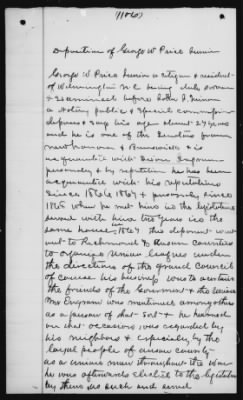 Deposition of George W Price Junior
George W Price Junior a citizen & resident
of Wilmington N C being duly sworn
& examined before John A
a Notary public & Special Commissioner
deposes & says his age about 27 years
and he is one of the Senators from
New Hanover & Brunswick & is
acquainted with Ingram
personally & by reputation he has been
acquainted with his reputation
since 1866 1867 & personally since
1868 when he met him in the legislature
served with him two years in the
same house; 1867 this deponent went
out to Richmond & Anson counties
to organize union leagues under
the directions of the grand Council
of course his business was to ascertain
the friends of the Government & the Union
Mr Ingram was mentioned among others
as a person of that sort & he learned
on that occasion was regarded by
his neighbors & especially by the
loyal people of Anson County
as a union man throughout the War
he was afterwards elected to the legislature
by them as such and served